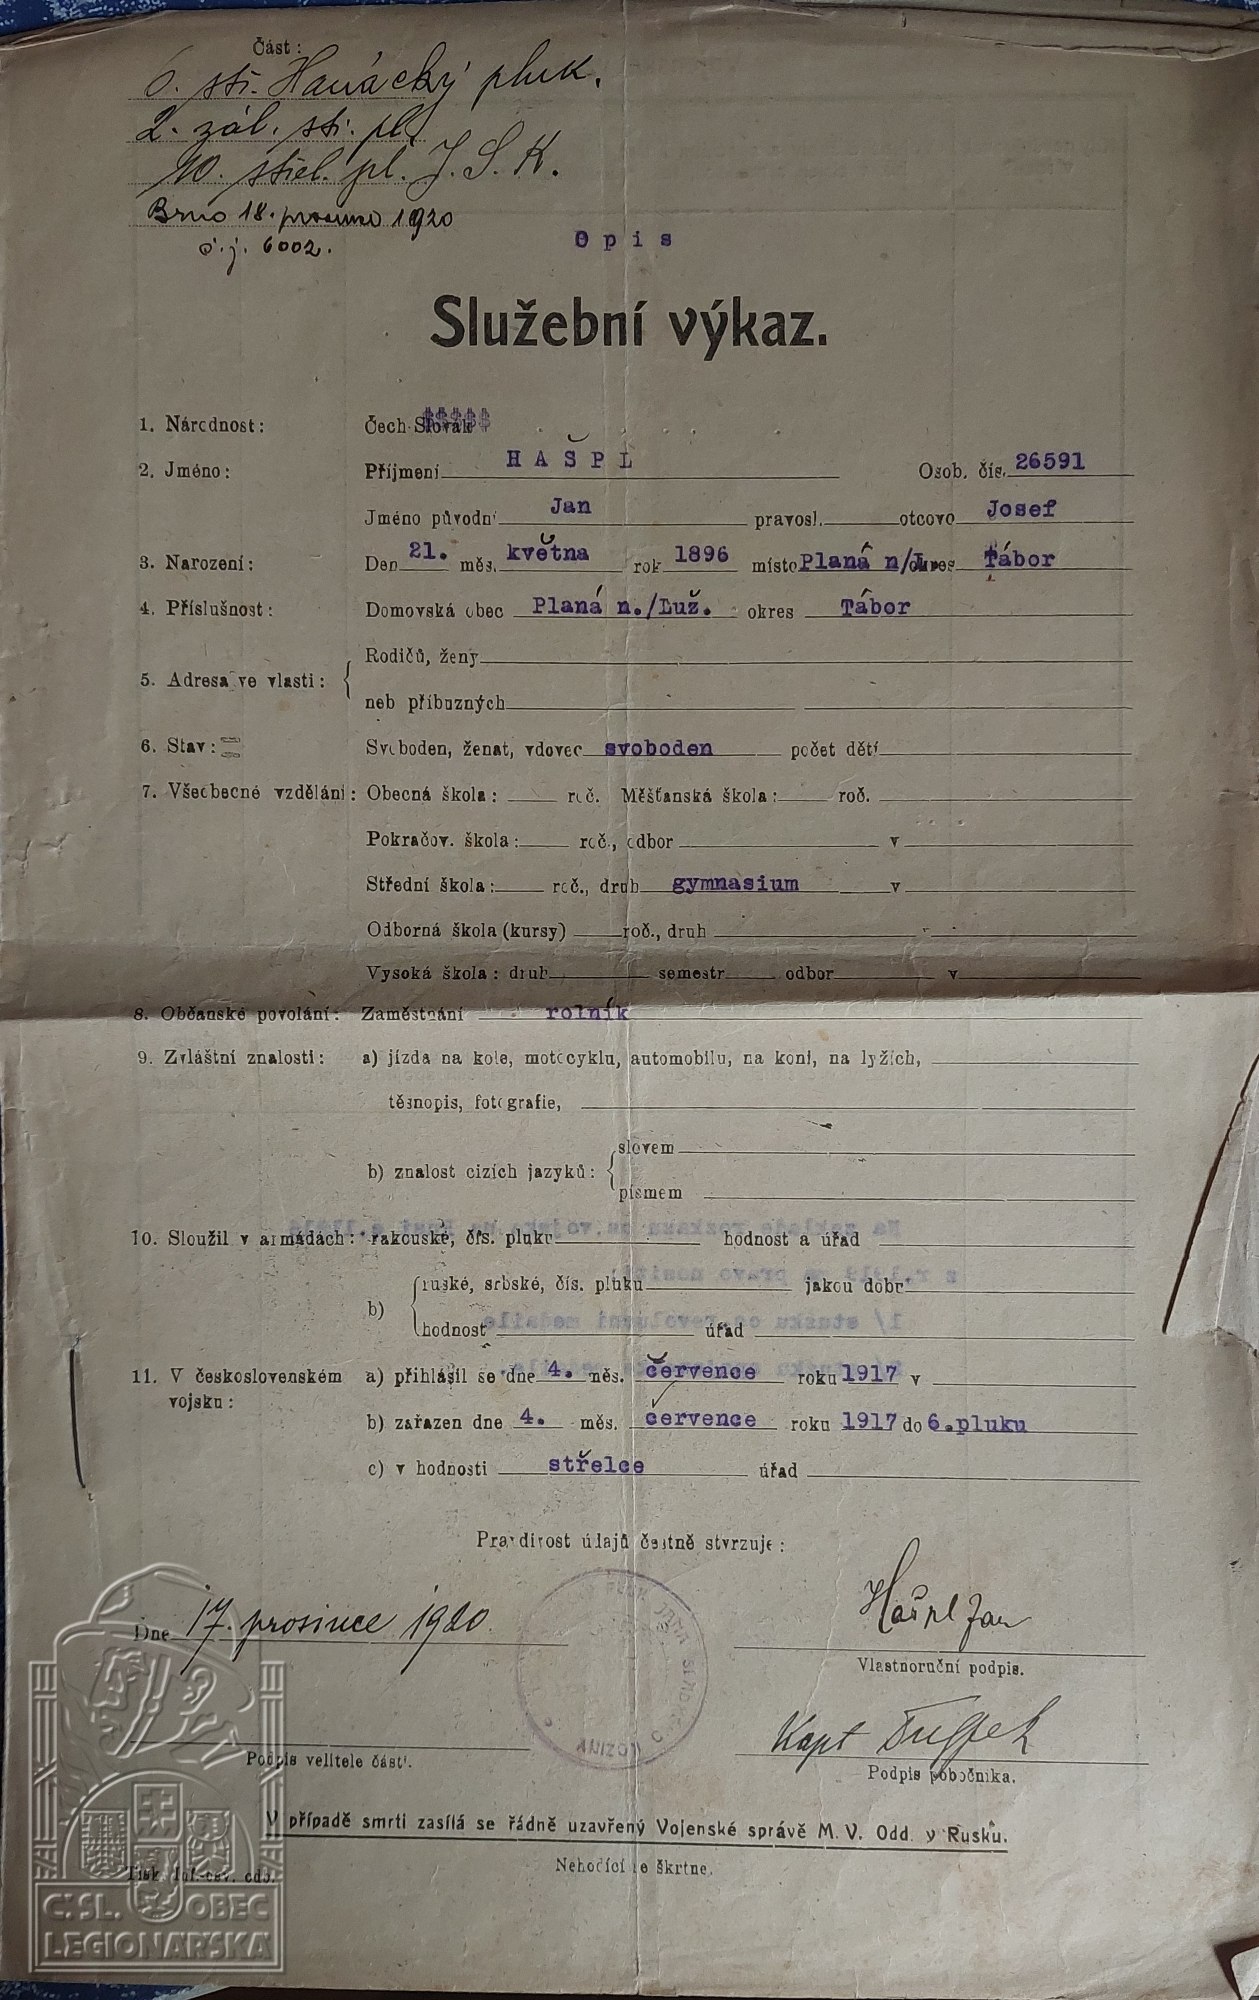 Část:
6. stř. Hanácký pluk.
2. zál. stř. pl.
10. střel. pl. J. S. K.
Brno 18. prosince 1920
č. j. 6002.
Opis
Služební výkaz.
1. Národnost: Čech-Slovák
2. Jméno: Příjmení HAŠPL Osob. čís. 26591
Jméno původní Jan pravosl. otcovo Josef
3. Narození: Den 21. měs. května rok 1896 místo Planá n/L. okres Tábor
4. Příslušnost: Domovská obec Planá n./Luž. okres Tábor
5. Adresa ve vlasti: Rodičů, ženy
neb příbuzných
6. Stav: Svoboden, ženat, vdovec svoboden počet dětí
7. Všeobecné vzdělání: Obecná škola: roč. Měšťanská škola: roč.
Pokračov. škola: roč., odbor v
Střední škola: roč., druh gymnasium v
Odborná škola (kursy) roč., druh
Vysoká škola: druh semestr odbor v
8. Občanské povolání: Zaměstnání rolník
9. Zvláštní znalosti: a) jízda na kole, motocyklu, automobilu, na koni, na lyžích,
těsnopis, fotografie,
b) znalost cizích jazyků: slovem
písmem
10. Sloužil v armádách: rakouské, čís. pluku hodnost a úřad
b) ruské, srbské, čís. pluku jakou dobr
hodnost úřad
11. V československém vojsku: a) přihlásil se dne 4. měs. července roku 1917 v
b) zařazen dne 4. měs. července roku 1917 do 6. pluku
c) v hodnosti střelce úřad
Pravdivost údajů čestně stvrzuje:
Dne 17. prosince 1920.
Hašpl Jan
Vlastnoruční podpis.
Kapt
Podpis velitele části.
Podpis pobočníka.
V případě smrti zasílá se řádně uzavřený Vojenské správě M. V. Odd. v Rusku.
Nehodící se škrtne.
Č. SL. OBEC
LEGIONÁŘSKÁ